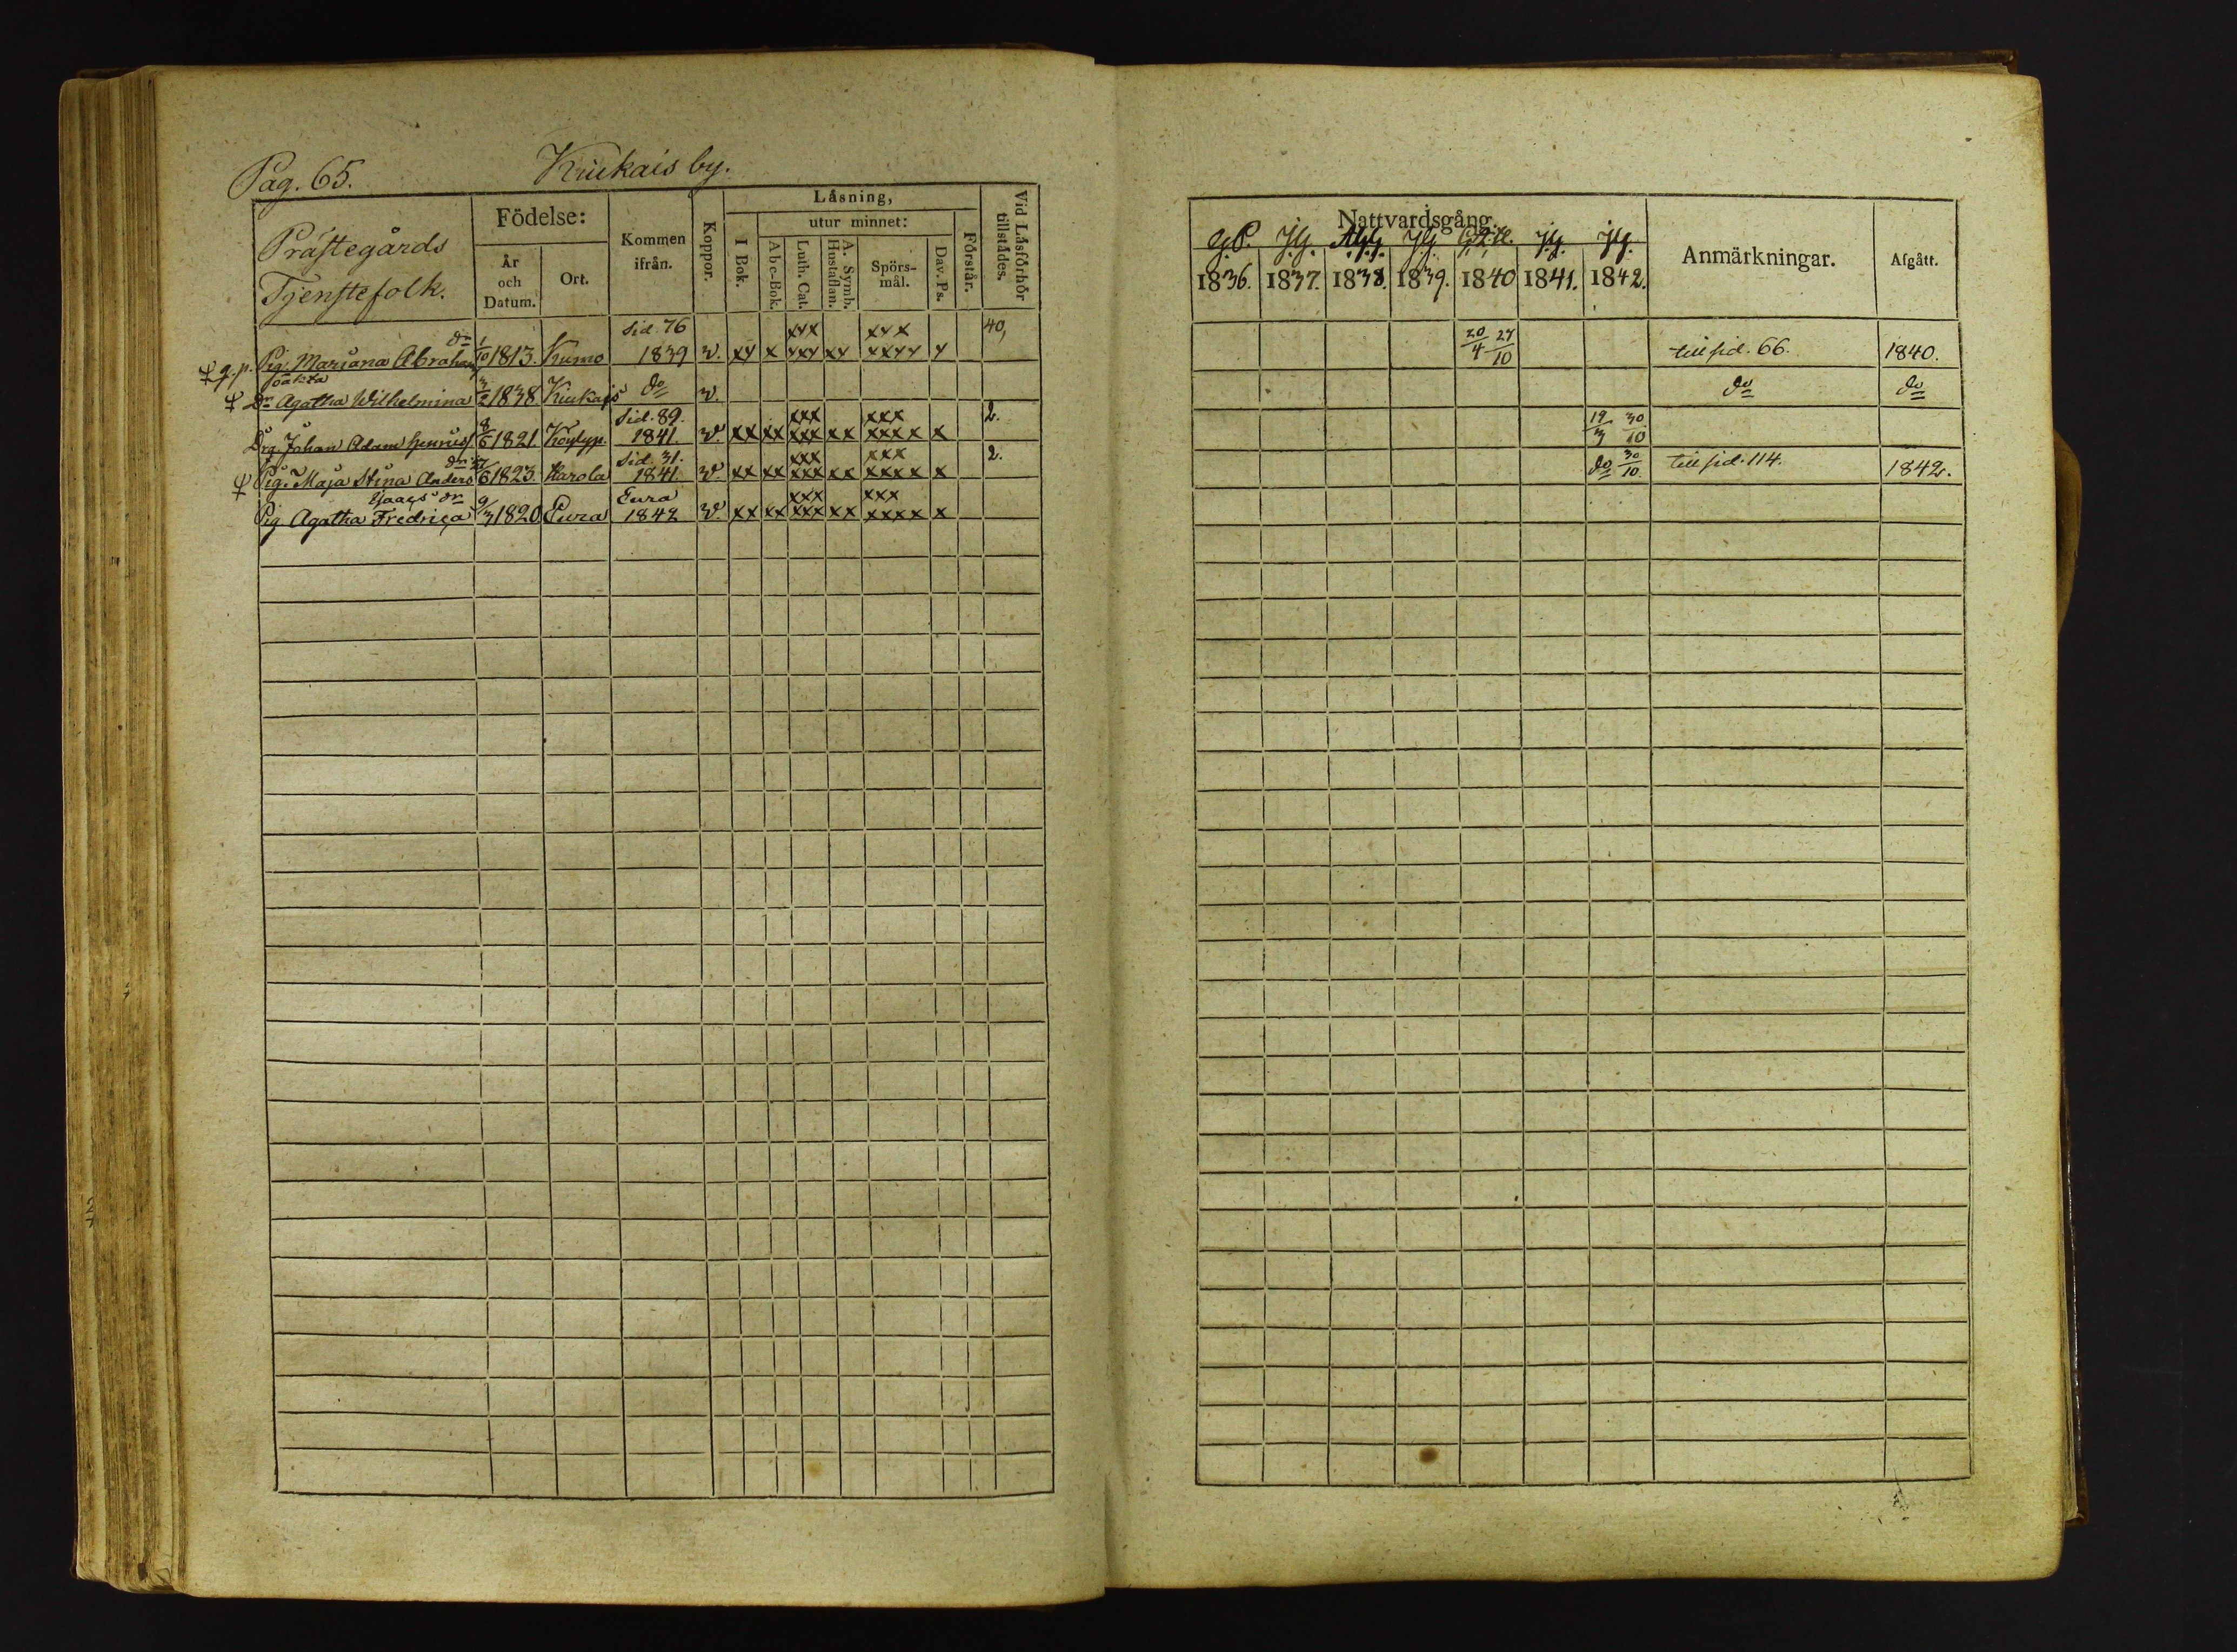 Pag. 65. Kiukais by.
Prästegårds
Tjenstefolk.
Födelse:
År
och
Datum.
Ort.
Kommen
ifrån.
Koppor.
Läsning,
utur minnet:
I Bok.
Abc-Bok.
Luth. Cat.
A. Symb.
Hustaflan.
Spörs-
mål.
Dav. Ps.
Förstår.
Vid Läsförhör
tillstädes.
Nattvardsgång.
1836. 1837. 1838. 1839. 1840 1841. 1842.
Anmärkningar.
Afgått.
dr Sid. 76 xxx xxx 40,
g.p. Pig. Mariana Abrahams 1/10 1813. Kumo 1839 v. xx x xxx xx xxxx x 20/4 27/10 till sid. 66. 1840.
oäkta
Dr Agatha Wilhelmina 3/2 1838. Kiukais do v. do do
Sid. 89. xxx xxx 2.
Drg. Johan Adam Henriss. 8/6 1821 Köylyp. 1841. v. xx xx xxx xx xxxx x 19/3 30/10
dr Sid. 31. xxx xxx 2.
Pig. Maja Stina Anders 27/6 1823. Harola 1841. v. xx xx xxx xx xxxx x do 30/10. till sid. 114. 1842.
dr Eura xxx xxx
Pig Agatha Fredrica 9/3 1820 Eura 1842 v. xx xx xxx xx xxxx x